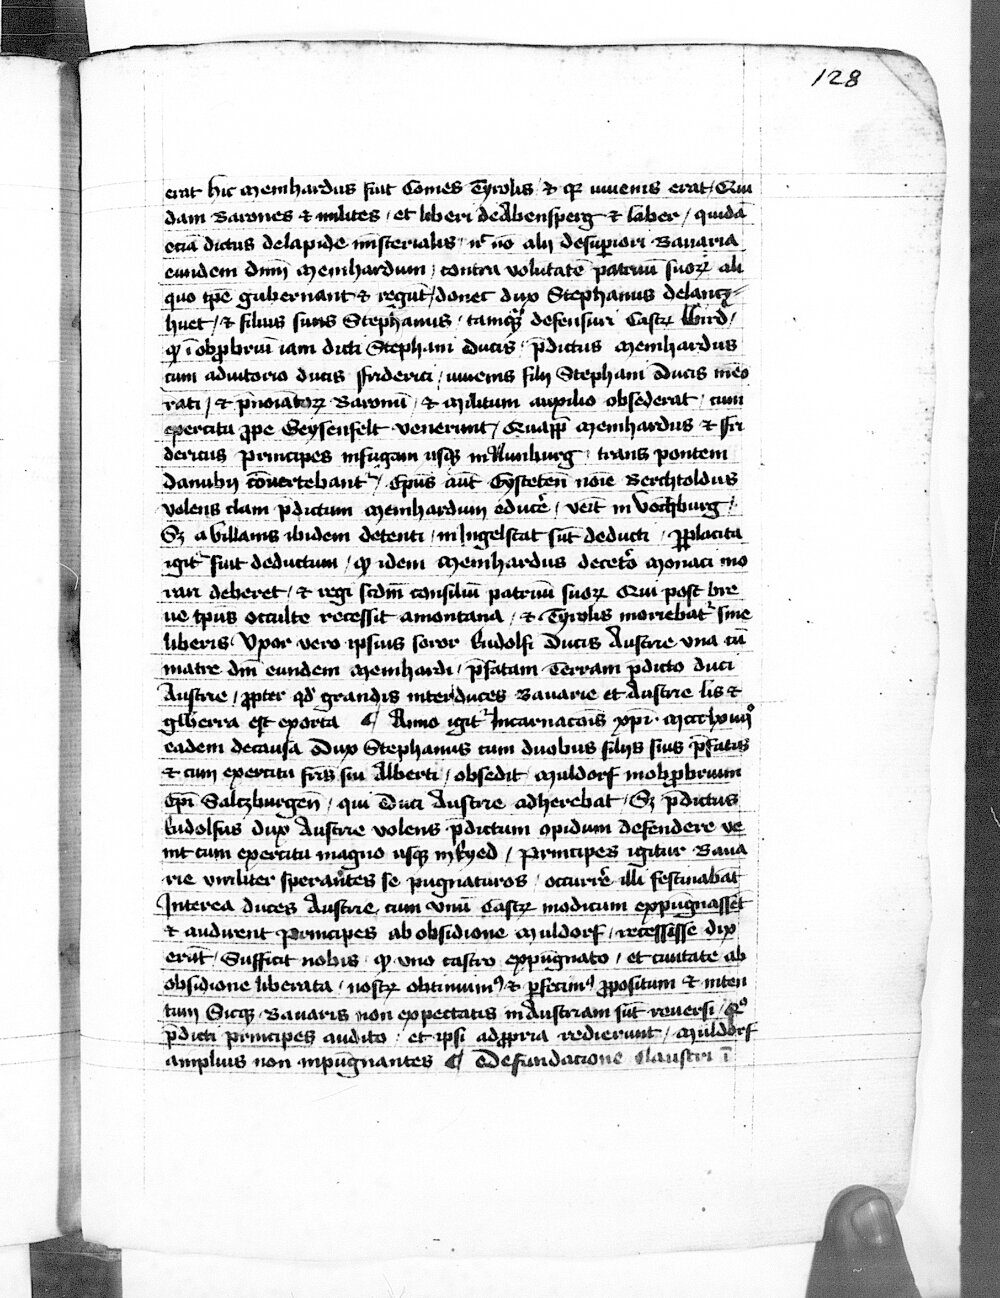 128
erat hic Meinhardus fuit Comes Tyrolis / & qr iuuenis erat / Qui
dam Barones & milites / et liberi de Abensperg & laber / quidā
eciā dictus delapide misterialis / nc̄ nō alij desuperiori Bauaria
eundem dnm̄ Meinhardum / contra volūtatē patruū suoꝝ ali
quo tpe gubernant & regūt / donec dux Stephanus delancz=
huet / & filius suus Stephanus / tamqꝫ defensuri Castꝝ
qꝫ ī obprobriū iam dicti Stephani ducis / p̄dictus Meinhardus
cum adiutorio ducis friderici / iuuenis filij Stephani ducis mēo
rati / & p̄noīatoꝝ Baronū / & militum auxilio obsederat / cum
exercitu prope Geysenfelt venerunt / Quapp̄ Meinhardus & fri
dericus principes infugam usqꝫ in Nunburg / trans pontem
danubij cōuertebant᷑ / Ep̄us aūt Eystetēn noīe Berchtoldus
volens clam p̄dictum Meinhardum educē / veīt in Vochburg /
Sꝫ a villanis ibidem detenti / in Ingelstat sūt deducti / ꝓplacita
igit᷑ fuit deductum / qꝫ idem Meinhardus decetō Monaci mo
rari deberet / & regi scdm̄ consiliū patruū suoꝝ Qui post bre
ue tpus occulte recessit amontana / & Tyrolis moriebat᷑ sine
liberis Vxor vero ipsius soror Rudolfi ducis Austrie vna cū
matre dm̄ eundem Meinhardi / p̄fatam Terram p̄dicto duci
Austrie / ꝓpter qd̄ grandis inter duces Bauarie et Austrie lis &
gwerra est exorta ¶ Anno igit᷑ Incarnacōis xpī
eadem decausa dux Stephanus cum duobus filijs suis p̄fatis
& cum exercitu fr̄is sui Alberti / obsedit Muldorf in obprobrium
Epī Salczburgen̄ / qui duci Austrie adherebat / Sꝫ p̄dictus
Rudolfus dux Austrie volens p̄dictum opidum defendere ve
nit cum exercitu magno usqꝫ in Ryed / principes igitur Baua
rie viriliter sperantes se pugnaturos / occurrē illi festinabāt
Interea duces Austrie cum vnū Castꝝ modicum expūgnassēt
& audirent principes ab obsidione Muldorf / recessisse dix
erāt / Sufficit nobis / qꝫ vno castro expugnato / et ciuitate ab
obsidione liberata / nostꝝ obtinuimꝰ & p̄fecimꝰ ꝓpositum & inten
tum Sicqꝫ Bauaris non expectatis in Austriam sūt reuersi /
p̄dicti principes audito / et ipsi adꝓpria redierunt / Muldorf
amplius non inpugnantes ¶ De fundacione claustri ī